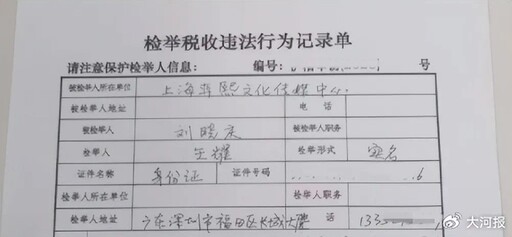 检举税收违法行为记录单
请注意保护检举人信息： 编号： 号
被检举人所在单位 上海 文化传媒中心
被检举人地址 电话
被检举人 刘晓庆 被检举人职务
检举人 王耀 检举形式 实名
证件名称 身份证 证件号码 6
检举人所在单位 检举人职务
检举人地址 广东深圳市福田区长城大厦 话 133
@大河报